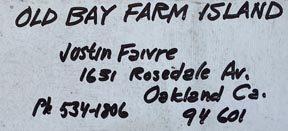 OLD BAY FARM ISLAND
Justin Faivre
1651 Rosedale Av.
Oakland Ca.
Ph 534-1806 94601